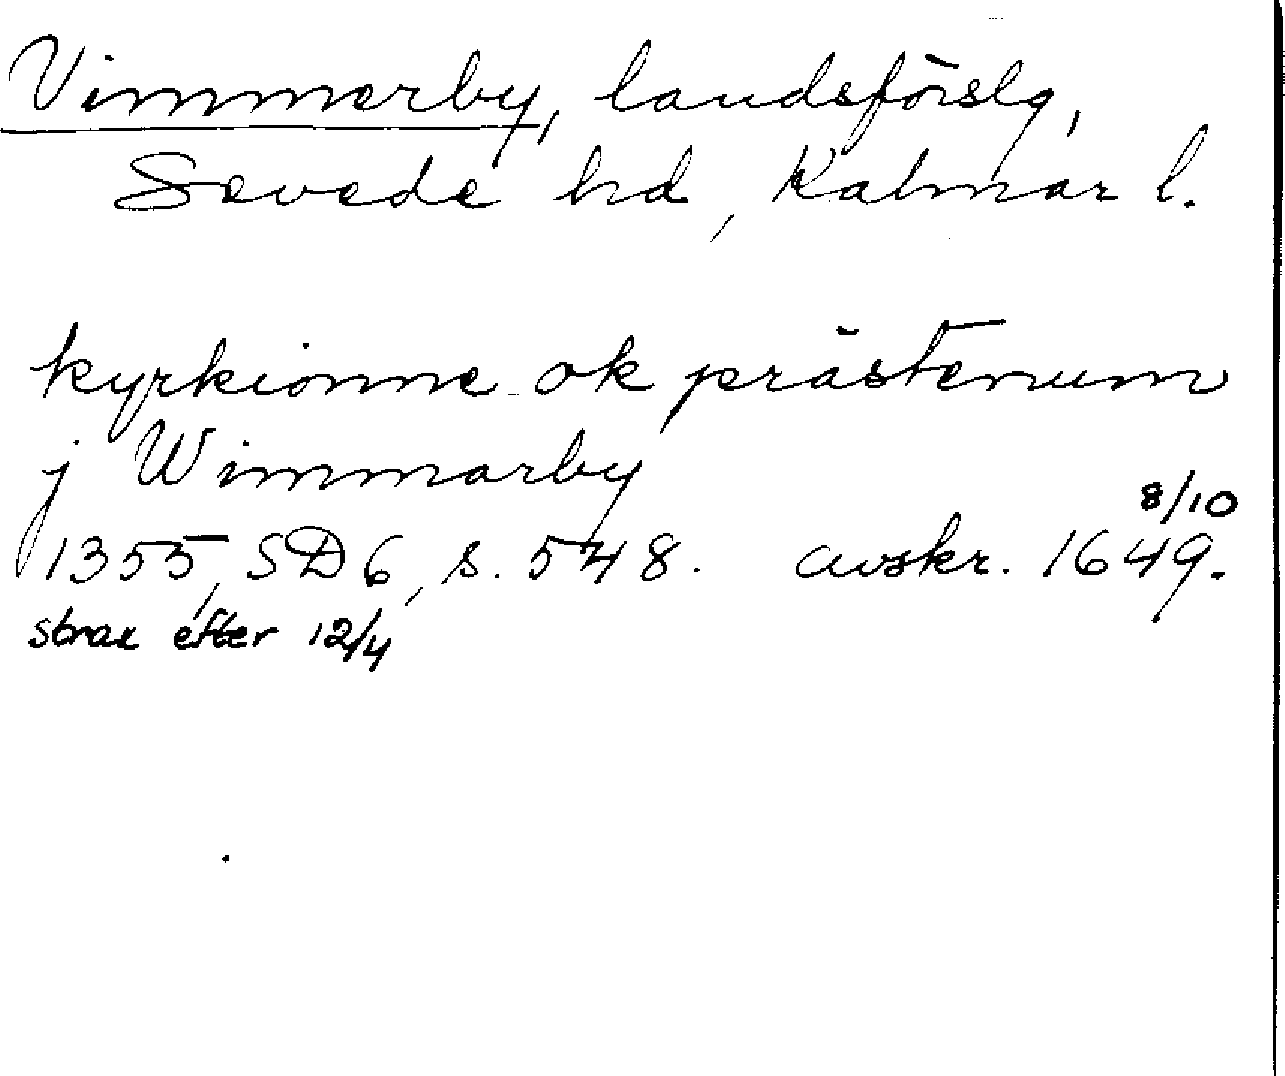 Vimmerby, landsförslg,
Sevede hd, Kalmar l.
kyrkionne ok prästenum
j Wimmarby
8/10
1355, SD 6, s. 548. avskr. 1649.
strax efter 12/4